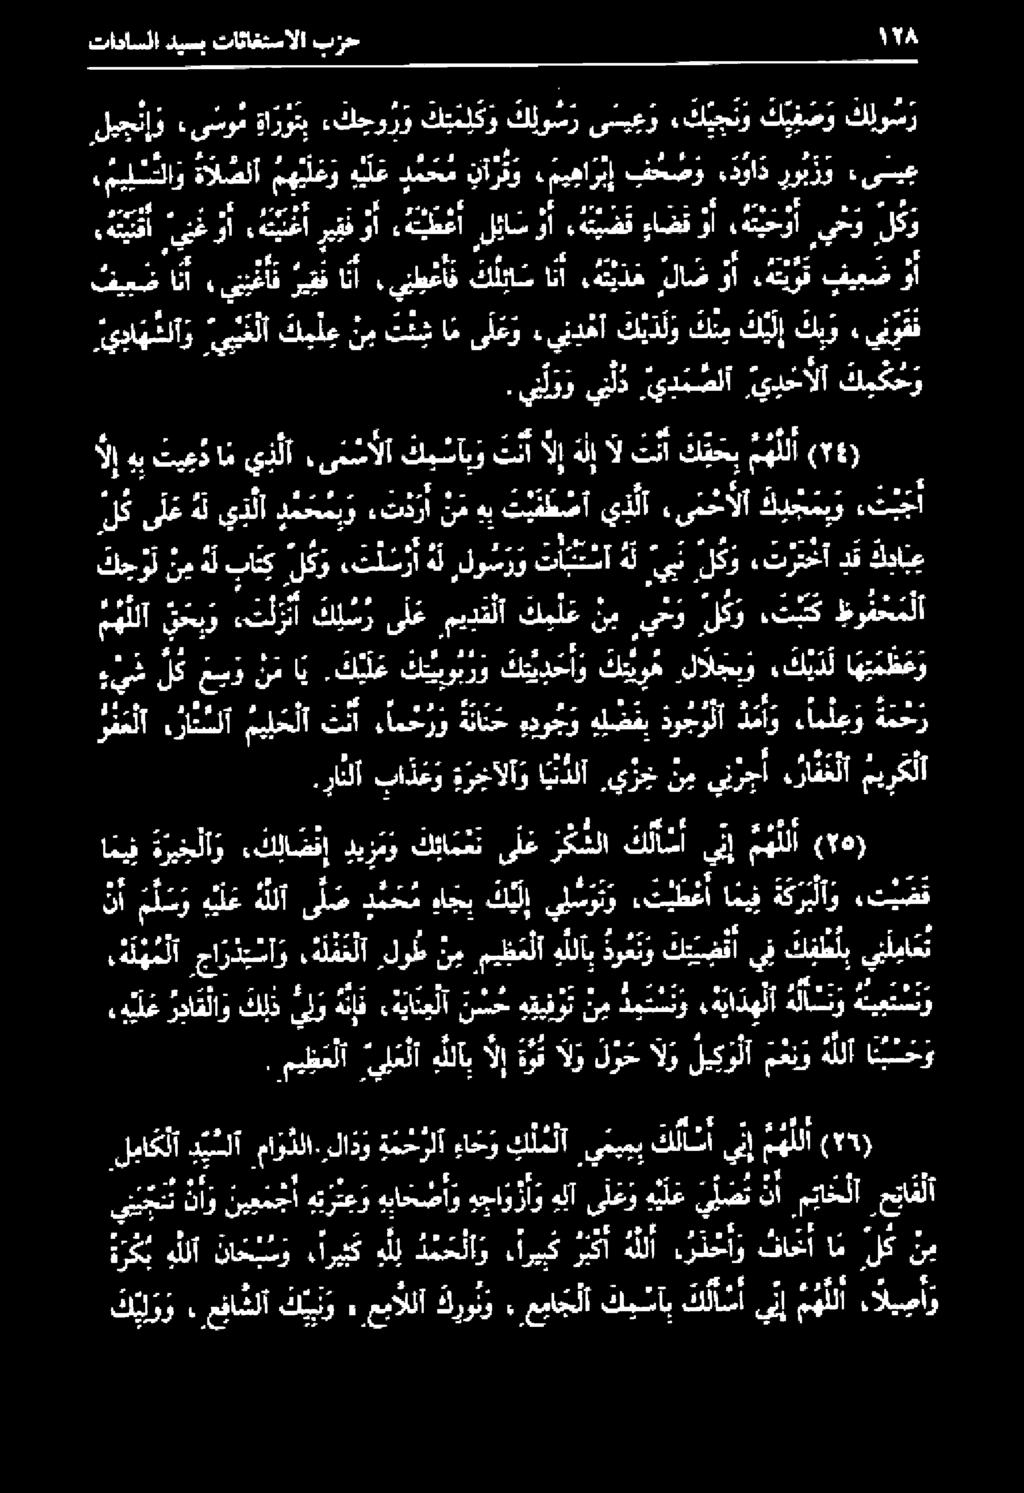 ١٢٨ حزب الاستغاثات بسيد السادات
رَسُولِكَ وَصَفِيِّكَ وَنَجِيِّكَ، وَعِيسَى رَسُولِكَ وَكَلِمَتِكَ وَرُوحِكَ، بِتَوْرَاةِ مُوسَى، وَإِنْجِيلِ
عِيسَى، وَزَبُورِ دَاوُدَ، وَصُحُفِ إِبْرَاهِيمَ، وَقُرْآنِ مُحَمَّدٍ عَلَيْهِ وَعَلَيْهِمُ ٱلصَّلَاةُ وَٱلتَّسْلِيمُ،
وَكُلِّ وَحْيٍ أَوْحَيْتَهُ، أَوْ قَضَاءٍ قَضَيْتَهُ، أَوْ سَائِلٍ أَعْطَيْتَهُ، أَوْ فَقِيرٍ أَغْنَيْتَهُ، أَوْ غَنِيٍّ أَقْنَيْتَهُ،
أَوْ ضَعِيفٍ قَوَّيْتَهُ، أَوْ ضَالٍّ هَدَيْتَهُ، أَنَا سَائِلُكَ فَأَعْطِنِي، أَنَا فَقِيرٌ فَأَغْنِنِي، أَنَا ضَعِيفٌ
فَقَوِّنِي، وَبِكَ إِلَيْكَ مِنْكَ وَلَدَيْكَ ٱهْدِنِي، وَعَلَى مَا شِئْتَ مِنْ عِلْمِكَ ٱلْغَيْبِيِّ وَٱلشَّهَادِيِّ
وَحُكْمِكَ ٱلْأَحَدِيِّ ٱلصَّمَدِيِّ دُلَّنِي وَوَلِّنِي.
(٢٤) أَللَّهُمَّ بِحَقِّكَ أَنْتَ لَا إِلٰهَ إِلَّا أَنْتَ وَبِٱسْمِكَ ٱلْأَسْمَى، ٱلَّذِي مَا دُعِيتَ بِهِ إِلَّا
أَجَبْتَ، وَبِمَجْدِكَ ٱلْأَحْمَى، ٱلَّذِي ٱصْطَفَيْتَ بِهِ مَنْ أَرَدْتَ، وَبِمُحَمَّدٍ ٱلَّذِي لَهُ عَلَى كُلِّ
عِبَادِكَ قَدِ ٱخْتَرْتَ، وَكُلِّ نَبِيٍّ لَهُ ٱسْتَنْبَأْتَ وَرَسُولٍ لَهُ أَرْسَلْتَ، وَكُلِّ كِتَابٍ لَهُ مِنْ لَوْحِكَ
ٱلْمَحْفُوظِ كَتَبْتَ، وَكُلِّ وَحْيٍ مِنْ عِلْمِكَ ٱلْقَدِيمِ عَلَى رُسُلِكَ أَنْزَلْتَ، وَبِحَقِّ ٱللَّهُمَّ
وَعَظَمَتِهَا لَدَيْكَ، وَبِجَلَالِ هُوِيَّتِكَ وَأَحَدِيَّتِكَ وَرُبُوبِيَّتِكَ عَلَيْكَ. يَا مَنْ وَسِعَ كُلَّ شَيْءٍ
رَحْمَةً وَعِلْماً، وَأَمَدَّ ٱلْوُجُودَ بِفَضْلِهِ وَجُودِهِ حَنَانَةً وَرُحْماً، أَنْتَ ٱلْحَلِيمُ ٱلسَّتَّارُ، ٱلْعَفُوُّ
ٱلْكَرِيمُ ٱلْغَفَّارُ، أَجِرْنِي مِنْ خِزْيِ ٱلدُّنْيَا وَٱلْآخِرَةِ وَعَذَابِ ٱلنَّارِ.
(٢٥) أَللَّهُمَّ إِنِّي أَسْأَلُكَ ٱلشُّكْرَ عَلَى نَعْمَائِكَ وَمَزِيدِ إِفْضَالِكَ، وَٱلْخِيَرَةَ فِيمَا
قَضَيْتَ، وَٱلْبَرَكَةَ فِيمَا أَعْطَيْتَ، وَتَوَسُّلِي إِلَيْكَ بِجَاهِ مُحَمَّدٍ صَلَّى ٱللَّهُ عَلَيْهِ وَسَلَّمَ أَنْ
تُعَامِلَنِي بِلُطْفِكَ فِي أَقْضِيَتِكَ وَنَعُوذُ بِٱللَّهِ ٱلْعَظِيمِ مِنْ طُولِ ٱلْغَفْلَهْ، وَٱسْتِدْرَاجِ ٱلْمُهْلَهْ،
وَنَسْتَعِينُهُ وَنَسْأَلُهُ ٱلْهِدَايَهْ، وَنَسْتَمِدُّ مِنْ تَوْفِيقِهِ حُسْنَ ٱلْعِنَايَهْ، فَإِنَّهُ وَلِيُّ ذٰلِكَ وَٱلْقَادِرُ عَلَيْهِ،
وَحَسْبُنَا ٱللَّهُ وَنِعْمَ ٱلْوَكِيلُ وَلَا حَوْلَ وَلَا قُوَّةَ إِلَّا بِٱللَّهِ ٱلْعَلِيِّ ٱلْعَظِيمِ.
(٢٦) أَللَّهُمَّ إِنِّي أَسْأَلُكَ بِمِيمَيِ ٱلْمُلْكِ وَحَاءِ ٱلرَّحْمَةِ وَدَالِ ٱلدَّوَامِ ٱلسَّيِّدِ ٱلْكَامِلِ
ٱلْفَاتِحِ ٱلْخَاتِمِ أَنْ تُصَلِّيَ عَلَيْهِ وَعَلَى آلِهِ وَأَزْوَاجِهِ وَأَصْحَابِهِ وَعِتْرَتِهِ أَجْمَعِينَ وَأَنْ تُنَجِّيَنِي
مِنْ كُلِّ مَا أَخَافُ وَأَحْذَرُ، أَللَّهُ أَكْبَرُ كَبِيراً، وَٱلْحَمْدُ لِلَّهِ كَثِيراً، وَسُبْحَانَ ٱللَّهِ بُكْرَةً
وَأَصِيلاً، أَللَّهُمَّ إِنِّي أَسْأَلُكَ بِٱسْمِكَ ٱلْجَامِعِ، وَنُورِكَ ٱللَّامِعِ، وَنَبِيِّكَ ٱلشَّافِعِ، وَوَلِيِّكَ